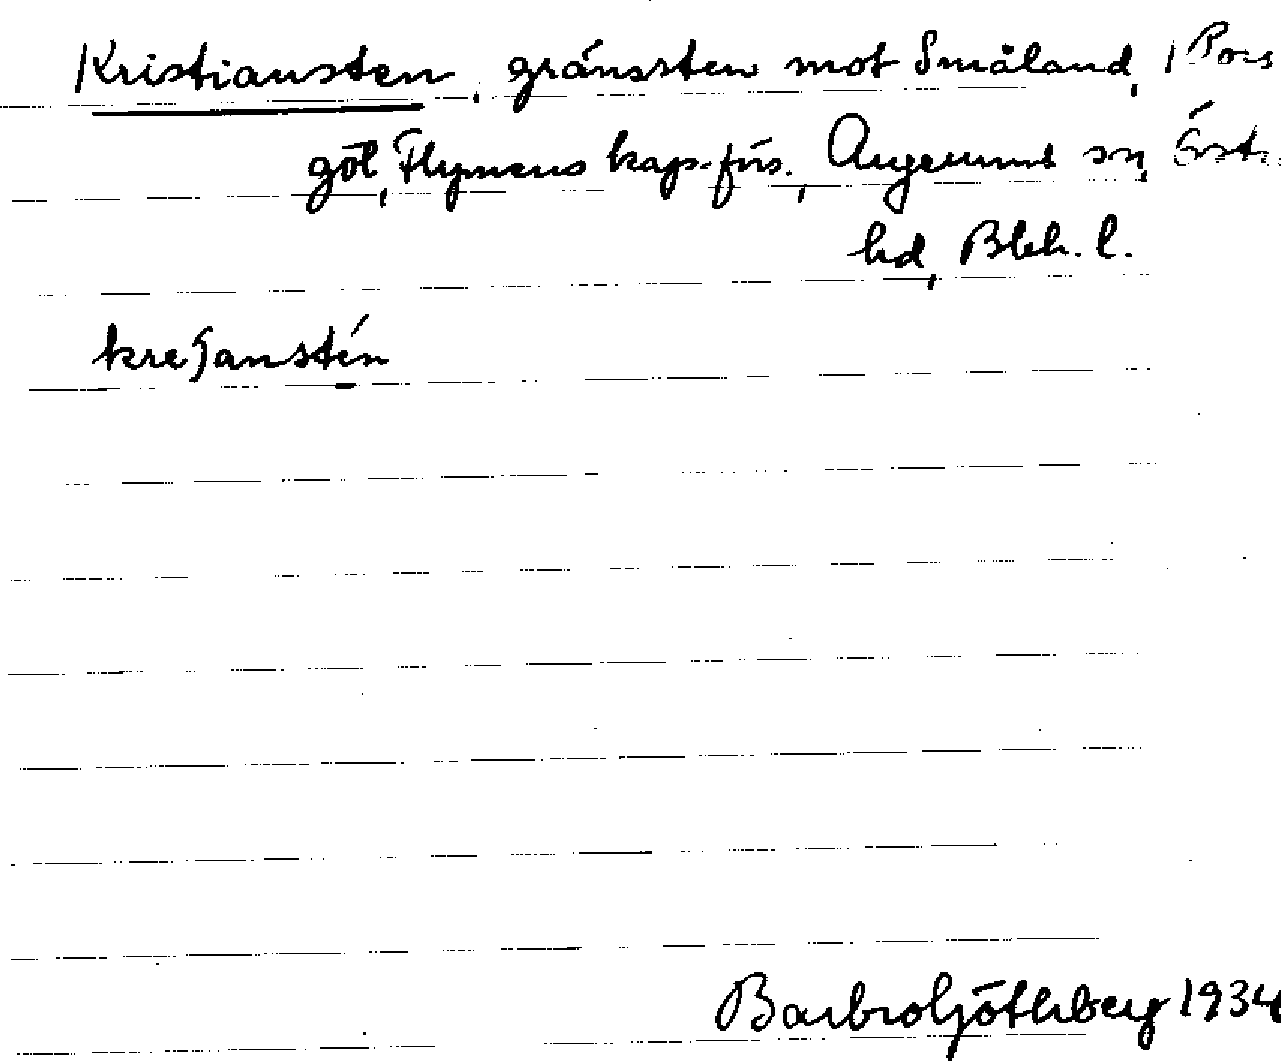 Kristiansten, gränssten mot Småland, i Pors
göl, Flymens kap.-förs., Augerums sn, Östr.
hd, Blek. l.
Barbro Götherberg 1934